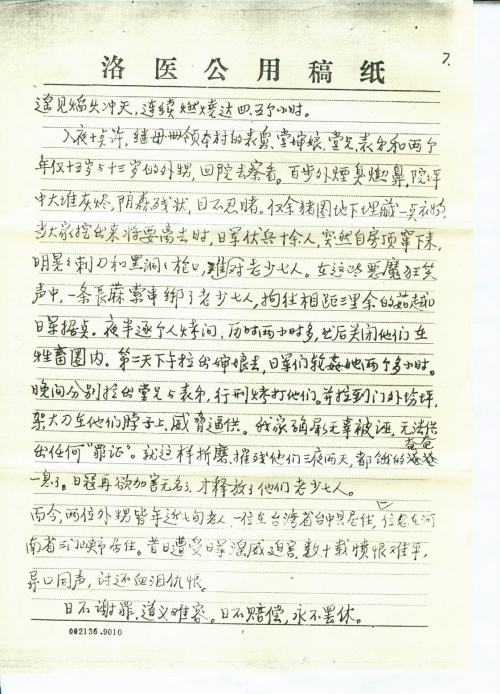 7.
洛医公用稿纸
遥见焰火冲天，连续燃烧达四、五个小时。
入夜十点许，继母册领本村的表舅、堂婶娘、堂兄、表弟和两个
年仅十五岁与十三岁的外甥，回院去察看。百步外烟臭熏鼻，院坪
中大堆灰烬，阴森残状，目不忍睹。仅余猪圈地下埋藏一点衣物，
当大家挖出来将要离去时，日军伏兵十余人，突然自房顶窜下来，
明晃晃刺刀和黑洞洞枪口，对老少七人。在这些恶魔狂笑
声中，一条长麻索串绑了老少七人，拘往相距三里余的茹
日军据点。夜半逐个人烤问，历时两小时多，然后关闭他们在
牲畜圈内。第二天下午拉出婶娘去，日军们轮姦她两个多小时。
晚间分别拉出堂兄与表弟，行刑烤打他们。并拉到门外场坪，
架大刀在他们脖子上，威胁逼供。我家确属无辜被诬，无法供
出任何“罪证”。就这样折磨、摧残他们三夜两天，都饿的奄奄
一息了。日寇再欲加害无名了，才释放了他们老少七人。
而今，两位外甥皆年近七旬老人，一位在台湾省台中县居住，一位在河
南省三门峡市居住。昔日遭受日军淫威迫害，数十载愤恨难平，
异口同声，讨还血泪仇恨。
日不谢罪，道义难容。日不赔偿，永不罢休。
002136.9010